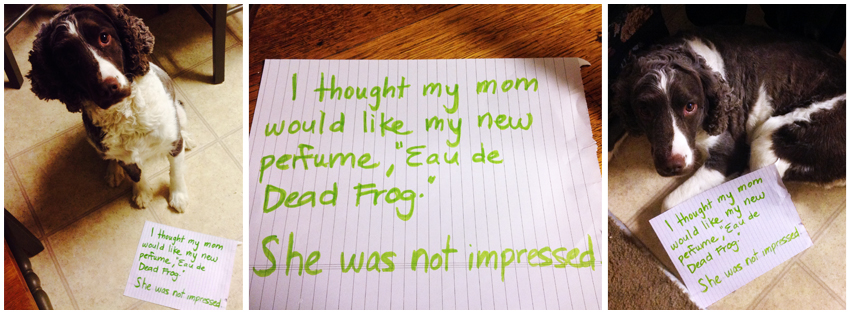 I thought my mom
would like my new
perfume, "Eau de
Dead Frog."
She was not impressed.
I thought my mom
would like my new
perfume, "Eau de
Dead Frog."
She was not impressed
I thought my mom
would like my new
perfume, "Eau de
Dead Frog."
She was not impressed.